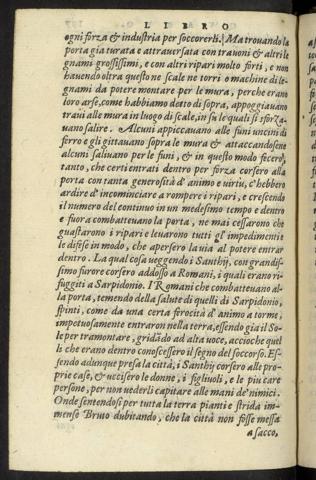 LIBRO
ogni forza & industria per soccorerli. Ma trouando la
porta giaturata e attrauersata con trauoni & altri le
gnami grossissimi, e con altri ripari molto forti, e non
hauendo oltra questo ne scale ne torri o machine di le-
gnami da potere montar per le mura, perche erano
loro arse, come habbiamo detto di sopra, appoggiauano
traui alle mura in luogo di scale, in su le quali si sforza-
uano salire. Alcuni appiccauano alle funi uncini di
ferro e gli gittauano sopra le mura & attaccandosene
alcuni saliuano per le funi, & in questo modo fecero
tanto, che certi entrati dentro per forza corsero alla
porta con tanta generosità d'animo e uirtù, c'hebbero
ardire d'incominciare a rompere i ripari, e crescendo
il numero del continuo in un medesimo tempo e dentro
e fuora combatteuano la porta, ne mai cessarono che
guastarono i ripari e leuarono tutti gl'impedimenti e
le difese in modo, che apersero la uia al potere entrar
dentro. La qual cosa ueggendo i Santhij, con grandis-
simo furore corsero addosso a Romani, i quali erano ri-
fuggiti a Sarpidonio. I Romani che combatteuano al-
la porta, temendo della salute di quelli di Sarpidonio,
spinti, come da una certa ferocità d'animo a torme,
impetuosamente entraron nella terra, essendo già il So-
le per tramontare, gridādo ad alta uoce, accioche quel
li che erano dentro conoscessero il segno del soccorso. Es-
sendo adunque presa la città, i Santhij corsero alle pro-
prie case, & uccisero le donne, i figliuoli, e le piu care
persone, per non uederli capitare alle mani de' nimici.
Onde sentendosi per tutta la terra pianti e strida im-
mense Bruto dubitando, che la città non fosse messa
a sacco,